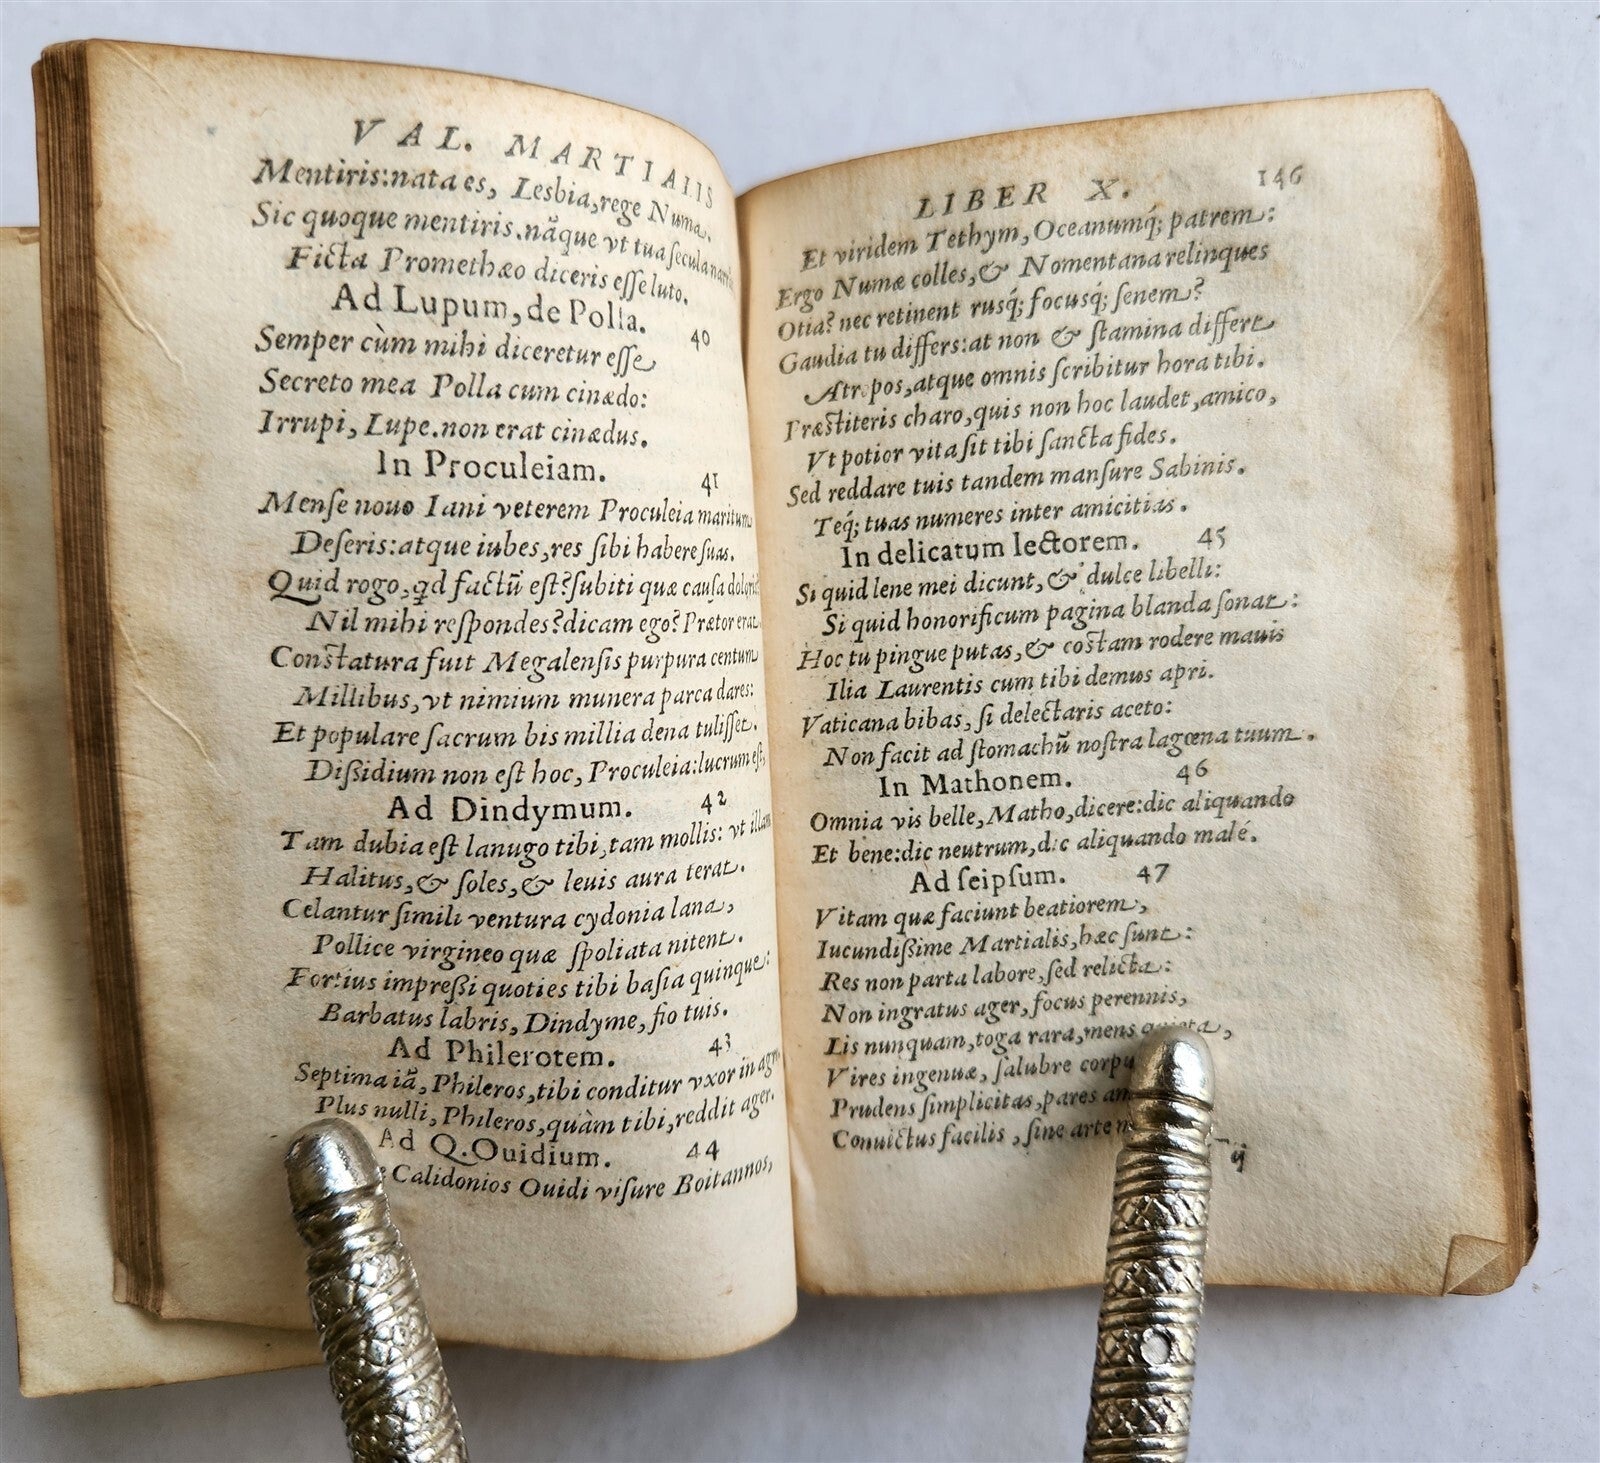 VAL. MARTIALIS
Mentiris: nata es, Lesbia, rege Numa.
Sic quoque mentiris. nāque vt tua secula
Ficta Promethæo diceris esse luto.
Ad Lupum, de Polla. 40
Semper cùm mihi diceretur esse
Secreto mea Polla cum cinædo:
Irrupi, Lupe. non erat cinædus.
In Proculeiam. 41
Mense nouo Iani veterem Proculeia maritum
Deseris: atque iubes, res sibi habere suas.
Quid rogo, qd factū est? subiti quæ causa
Nil mihi respondes? dicam ego? Prætor erat.
Constatura fuit Megalensis purpura centum
Millibus, vt nimium munera parca dares:
Et populare sacrum bis millia dena tulisset.
Dissidium non est hoc, Proculeia: lucrum est,
Ad Dindymum. 42
Tam dubia est lanugo tibi, tam mollis: vt illam
Halitus, & soles, & leuis aura terat.
Celantur simili ventura cydonia lana,
Pollice virgineo quæ spoliata nitent.
Fortius impressi quoties tibi basia quinque:
Barbatus labris, Dindyme, fio tuis.
Ad Philerotem. 43
Septima iā, Phileros, tibi conditur vxor in agro
Plus nulli, Phileros, quàm tibi, reddit ager.
Ad Q. Ouidium. 44
Calidonios Ouidi visure Boitannos,
LIBER X. 146
Et viridem Tethym, Oceanumq́; patrem:
Ergo Numæ colles, & Nomentana relinques
Otia? nec retinent rusq́; focusq́; senem?
Gaudia tu differs: at non & stamina differt
Atropos, atque omnis scribitur hora tibi.
Præstiteris charo, quis non hoc laudet, amico,
Vt potior vita sit tibi sancta fides.
Sed reddare tuis tandem mansure Sabinis.
Teq́; tuas numeres inter amicitias.
In delicatum lectorem. 45
Si quid lene mei dicunt, & dulce libelli:
Si quid honorificum pagina blanda sonat:
Hoc tu pingue putas, & costam rodere mauis
Ilia Laurentis cum tibi demus apri.
Vaticana bibas, si delectaris aceto:
Non facit ad stomachū nostra lagœna tuum.
In Mathonem. 46
Omnia vis belle, Matho, dicere: dic aliquando
Et bene: dic neutrum, dic aliquando malé.
Ad seipsum. 47
Vitam quæ faciunt beatiorem,
Iucundissime Martialis, hæc sunt:
Res non parta labore, sed relicta:
Non ingratus ager, focus perennis,
Lis nunquam, toga rara, mens quieta,
Vires ingenuæ, salubre corpu
Prudens simplicitas, pares am
Conuictus facilis, sine arte m
ij